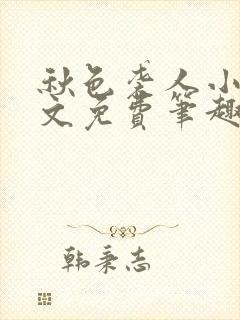 秋色老人小
文免费笔趣
韩秉志